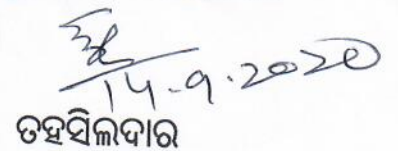 14.9.2020
ତହସିଲଦାର